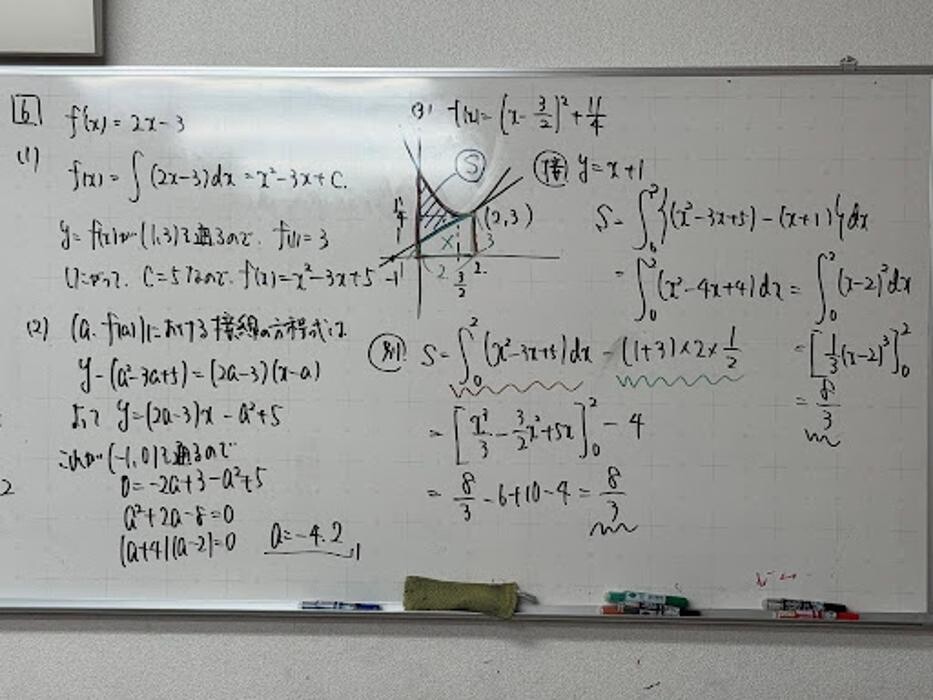 6 f'(x) = 2x-3
(1)
f(x) = ∫ (2x-3)dx = x²-3x+C.
y=f(x)が(1,3)を通るので、f(1)=3
したがって、C=5なので、f(x)=x²-3x+5
(2) (a, f(a))における接線の方程式は
y-(a²-3a+5)=(2a-3)(x-a)
よって y=(2a-3)x-a²+5
これが(-1,0)を通るので
0=-2a+3-a²+5
a²+2a-8=0
(a+4)(a-2)=0 a=-4.2
(3) f(x)=(x-3/2)²+11/4
S
(2,3)
11/4
1
-1
2
3/2
2
3
接 y=x+1
S=∫₀²{(x²-3x+5)-(x+1)}dx
=∫₀²(x²-4x+4)dx=∫₀²(x-2)²dx
=[1/3(x-2)³]₀²
=8/3
別 S=∫₀²(x²-3x+5)dx-(1+3)×2×1/2
=[x³/3-3/2x²+5x]₀²-4
=8/3-6+10-4=8/3
2